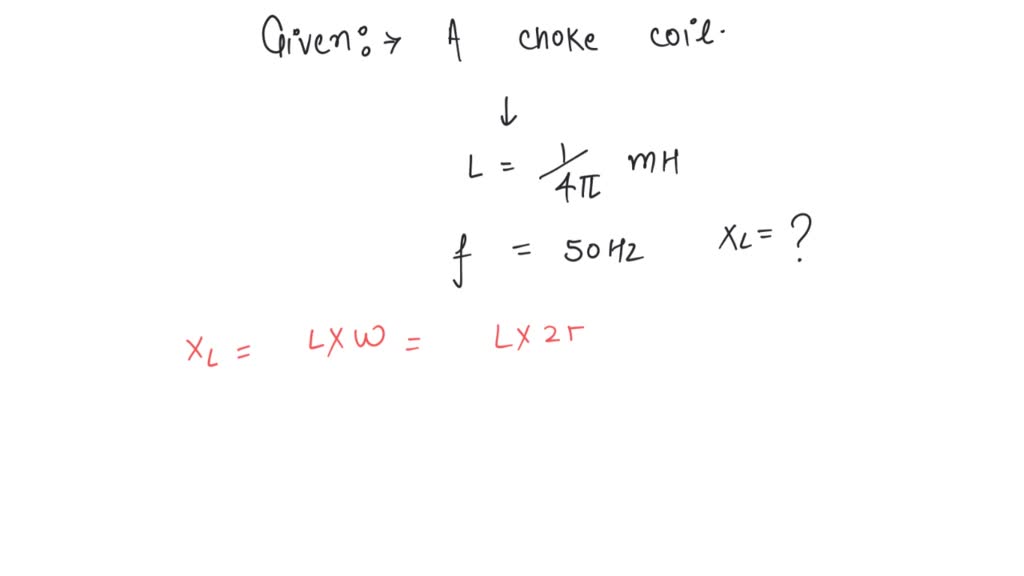 Given:→ A choke coil.
↓
L = 1/4π mH
f = 50Hz XL = ?
XL = L×ω = L×2